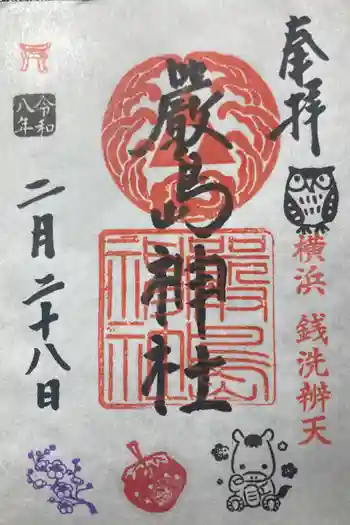 奉拝
横浜 銭洗辨天
嚴島神社
嚴島
神社
令和
八年
二月二十八日